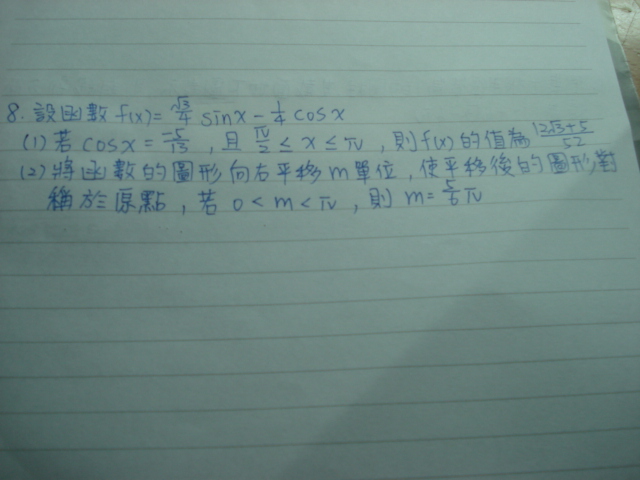 8. 設函數 f(x)= √3/4 sinx - 1/4 cosx
(1) 若 cosx = -5/13 , 且 π/2 ≤ x ≤ π , 則 f(x) 的值為 (12√3+5)/52
(2) 將函數的圖形向右平移 m 單位, 使平移後的圖形對
稱於原點, 若 0 < m < π , 則 m = 5/6 π